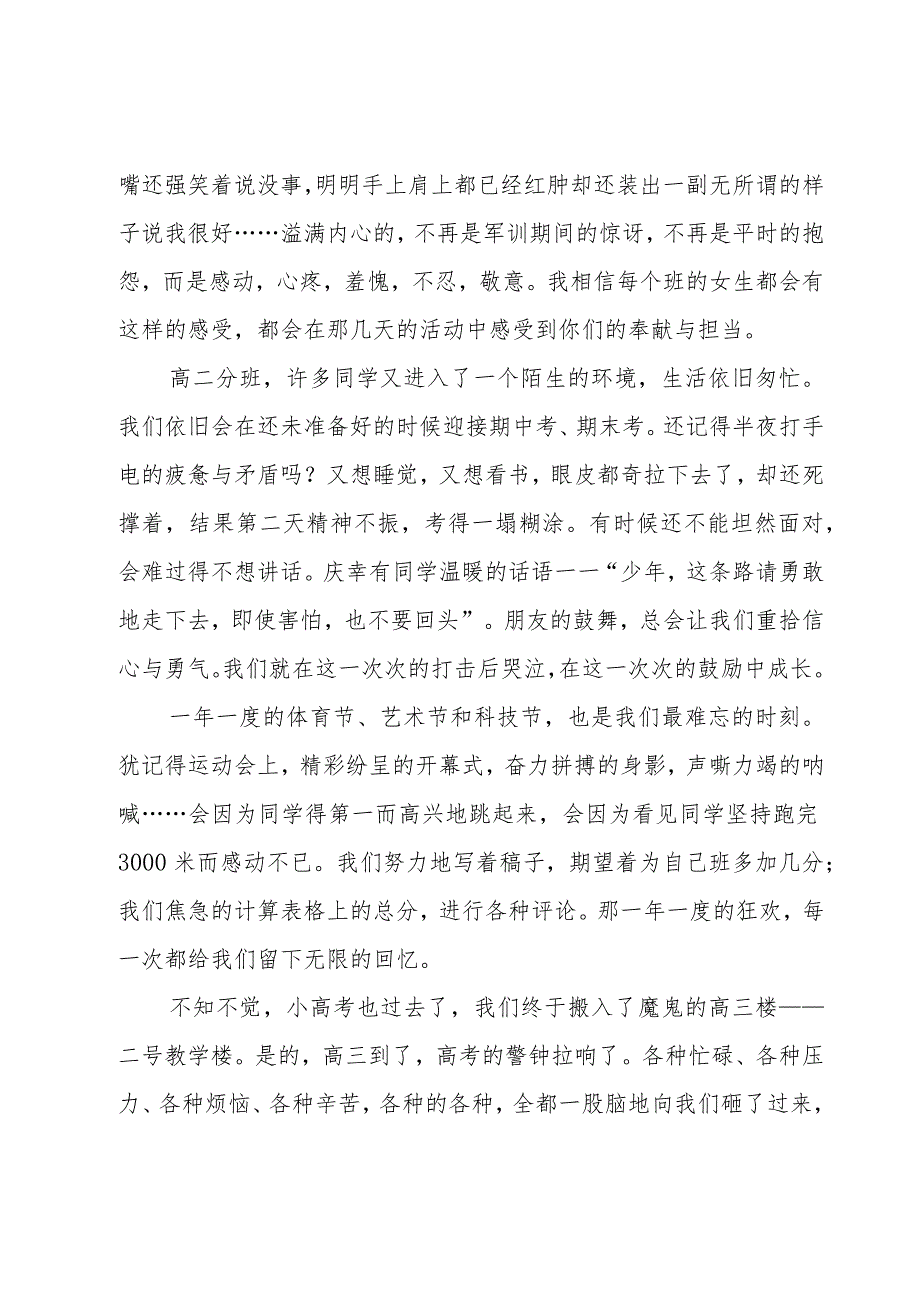 嘴还强笑着说没事，明明手上肩上都已经红肿却还装出一副无所谓的样
子说我很好……溢满内心的，不再是军训期间的惊讶，不再是平时的抱
怨，而是感动，心疼，羞愧，不忍，敬意。我相信每个班的女生都会有
这样的感受，都会在那几天的活动中感受到你们的奉献与担当。
高二分班，许多同学又进入了一个陌生的环境，生活依旧匆忙。
我们依旧会在还未准备好的时候迎接期中考、期末考。还记得半夜打手
电的疲惫与矛盾吗？又想睡觉，又想看书，眼皮都奇拉下去了，却还死
撑着，结果第二天精神不振，考得一塌糊涂。有时候还不能坦然面对，
会难过得不想讲话。庆幸有同学温暖的话语一一“少年，这条路请勇敢
地走下去，即使害怕，也不要回头”。朋友的鼓舞，总会让我们重拾信
心与勇气。我们就在这一次次的打击后哭泣，在这一次次的鼓励中成长。
一年一度的体育节、艺术节和科技节，也是我们最难忘的时刻。
犹记得运动会上，精彩纷呈的开幕式，奋力拼搏的身影，声嘶力竭的呐
喊……会因为同学得第一而高兴地跳起来，会因为看见同学坚持跑完
3000 米而感动不已。我们努力地写着稿子，期望着为自己班多加几分；
我们焦急的计算表格上的总分，进行各种评论。那一年一度的狂欢，每
一次都给我们留下无限的回忆。
不知不觉，小高考也过去了，我们终于搬入了魔鬼的高三楼——
二号教学楼。是的，高三到了，高考的警钟拉响了。各种忙碌、各种压
力、各种烦恼、各种辛苦，各种的各种，全都一股脑地向我们砸了过来，